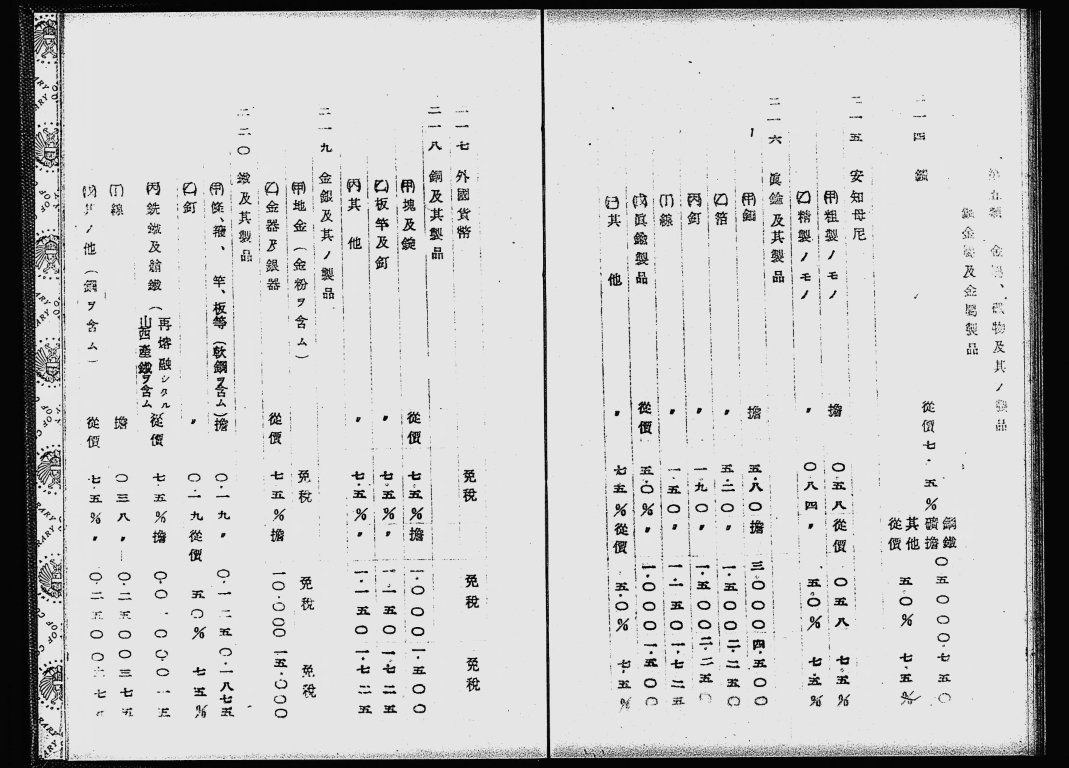 金屬、礦物及其ノ製品
金屬及金屬製品
二一四
從價 七・五% 鋼鐵礦擔 〇五〇〇 〇・七五〇
其他從價 五・〇% 七・五%
二一五 安知母尼
(甲)粗製ノモノ 擔 〇五八 從價 〇五八 七・五%
(乙)精製ノモノ 〃 〇八四 〃 五・〇% 七・五%
二一六 眞鍮及其製品
(甲)鈕 擔 五・八〇 擔 三・〇〇〇 四・五〇〇
(乙)箔 〃 五・二〇 〃 一・五〇〇 二・二五〇
(丙)釘 〃 一・九〇 〃 一・五〇〇 二・二五〇
(丁)線 〃 一・五〇 〃 一・一五〇 一・七二五
(戊)眞鍮製品 從價 五・〇% 〃 一・〇〇〇 一・五〇〇
(己)其他 〃 七・五% 從價 五・〇% 七・五%
二一七 外國貨幣 免稅 免稅 免稅
二一八 銅及其製品
(甲)塊及錠 從價 七・五% 擔 一・〇〇〇 一・五〇〇
(乙)板竿及釘 〃 七・五% 〃 一・一五〇 一・七二五
(丙)其他 〃 七・五% 〃 一・一五〇 一・七二五
二一九 金銀及其ノ製品
(甲)地金(金粉ヲ含ム) 免稅 免稅 免稅
(乙)金器及銀器 從價 七・五% 擔 一〇・〇〇〇 一五・〇〇〇
二二〇 鐵及其製品
(甲)條、箍、竿、板等(軟鋼ヲ含ム) 擔 〇・一九 〃 〇・一二五 〇・一八七五
(乙)釘 〃 〇・一九 從價 五〇% 七五%
(丙)銑鐵及鎔鐵(再熔融シタル山西產鐵ヲ含ム 從價 七・五% 擔
(丁)線 擔 〇三八 〃 〇・二五〇 〇三七五
其ノ他(鋼ヲ含ム) 從價 七・五% 〃 〇・二五〇